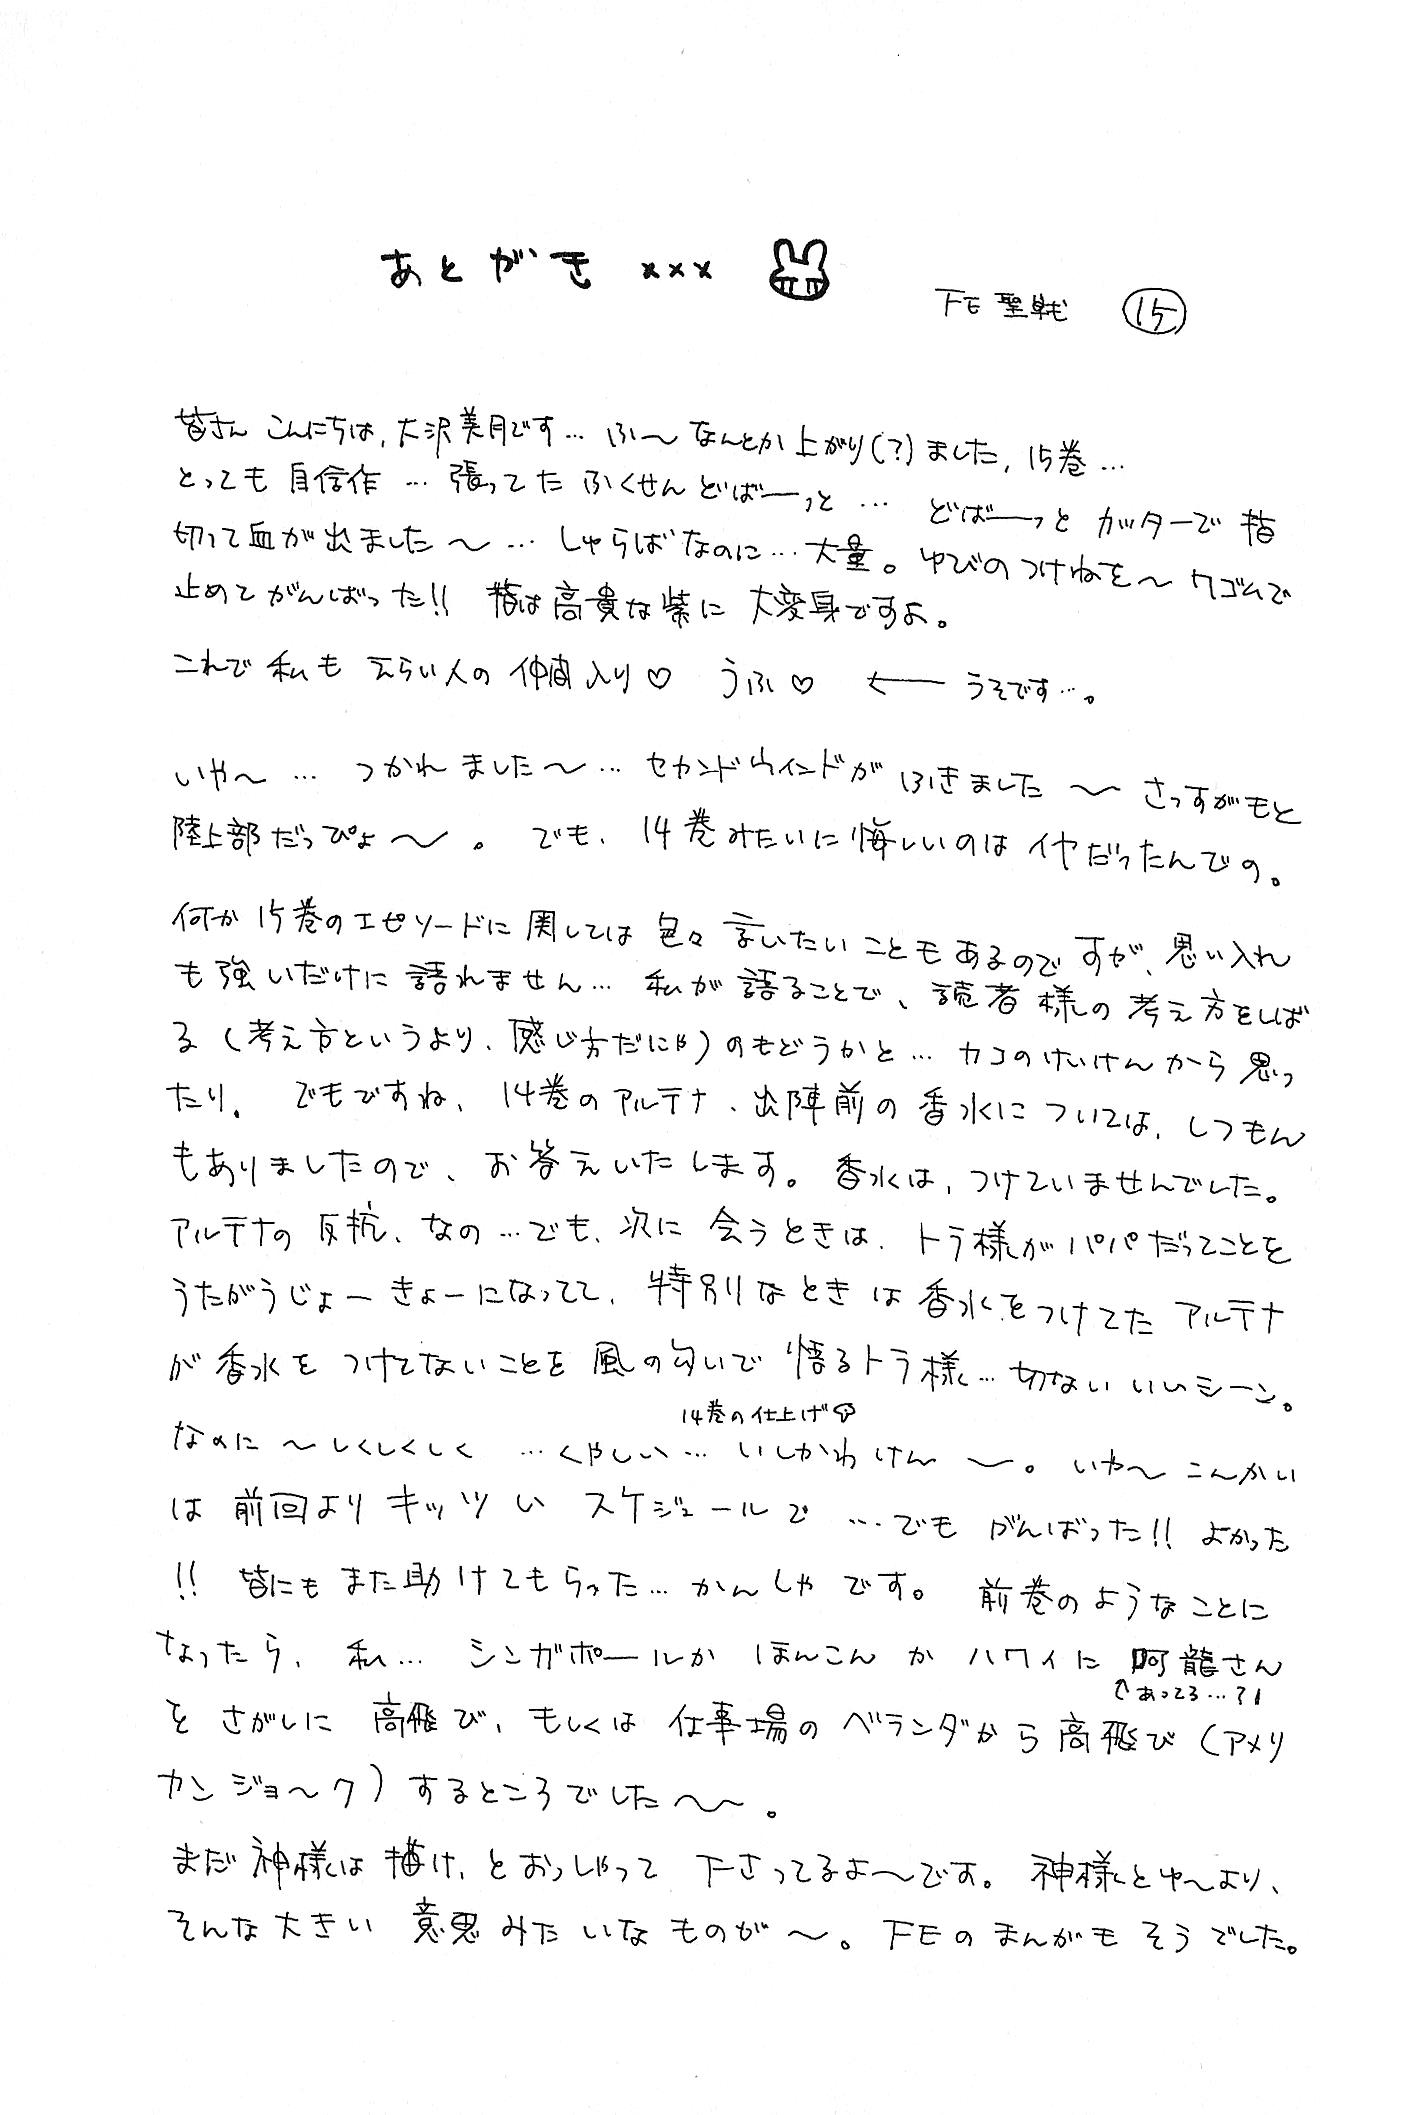 あとがき ×××
FE 聖戦 ⑮
皆さん こんにちは, 大沢美月です… ふ〜 なんとか上がり(?)ました, 15巻…
とっても 自信作 … 張ってた ふくせん どばーっと … どばーっと カッターで 指
切って血が出ました〜… しゅらばなのに… 大量。ゆびのつけねを〜ワゴムで
止めてがんばった!! 指は高貴な紫に 大変身ですよ。
これで 私も えらい人の 仲間入り♡ うふ♡ ← うそです…。
いや〜 … つかれ ました〜… セカンドウインドが ふきました 〜 さっすがもと
陸上部だっぴょ〜。 でも、14巻みたいに悔しいのはイヤだったんでの。
何か 15巻のエピソードに 関しては 色々 言いたい こともあるのですが、思い入れ
も強いだけに 語れません… 私が語ることで、読者様の 考え方をしば
る (考え方というより、感じ方だにゃ) のもどうかと… カコのけいけんから 思っ
たり。 でもですね、14巻のアルテナ、出陣前の香水については、しつもん
もありましたので、お答えいたします。香水は、つけていませんでした。
アルテナの 反抗、なの…でも、次に 会うときは、トラ様がパパだってことを
うたがうじょーきょーになってて、特別なときは香水をつけてた アルテナ
が香水を つけてないことを 風の匂いで 悟るトラ様… 切ない いいシーン。
14巻の仕上げ
なのに 〜しくしくしく …くやしい… いしかわけん 〜。いや〜 こんかい
は 前回より キッツい スケジュールで …でも がんばった!! よかった
!! 皆にも また助けてもらった… かんしゃ です。 前巻のようなことに
なったら、私… シンガポールか ほんこん か ハワイに 阿龍さん
↑あってる…?!
を さがしに 高飛び、もしくは 仕事場の ベランダから 高飛び (アメリ
カンジョ〜ク) するところでした〜〜。
まだ神様は 描け、とおっしゃって 下さってるよ〜です。神様とゆ〜より、
そんな大きい 意思みたいなものが〜。FEのまんがも そうでした。